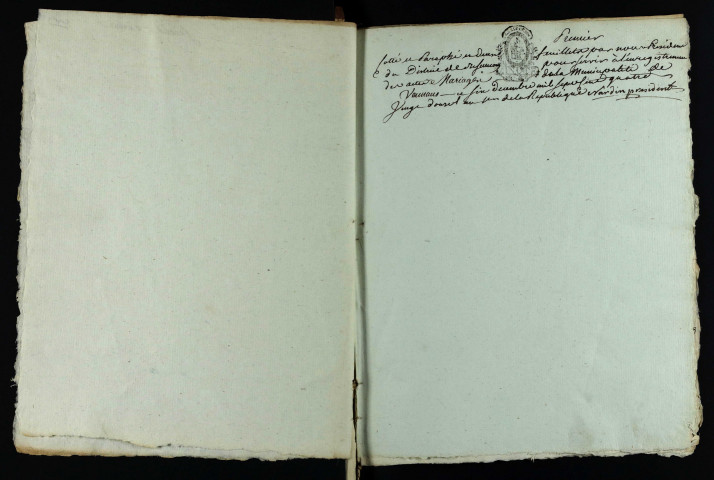 Premier
Cotté et Paraphé en deux feuillets par nous Président
du District de Besançon pour servir à l'enregistrement
des actes de Mariages de la Municipalité de
ce fin decembre mil sept cent quatre
Vingt douze l'an 1er de la République Nardin president